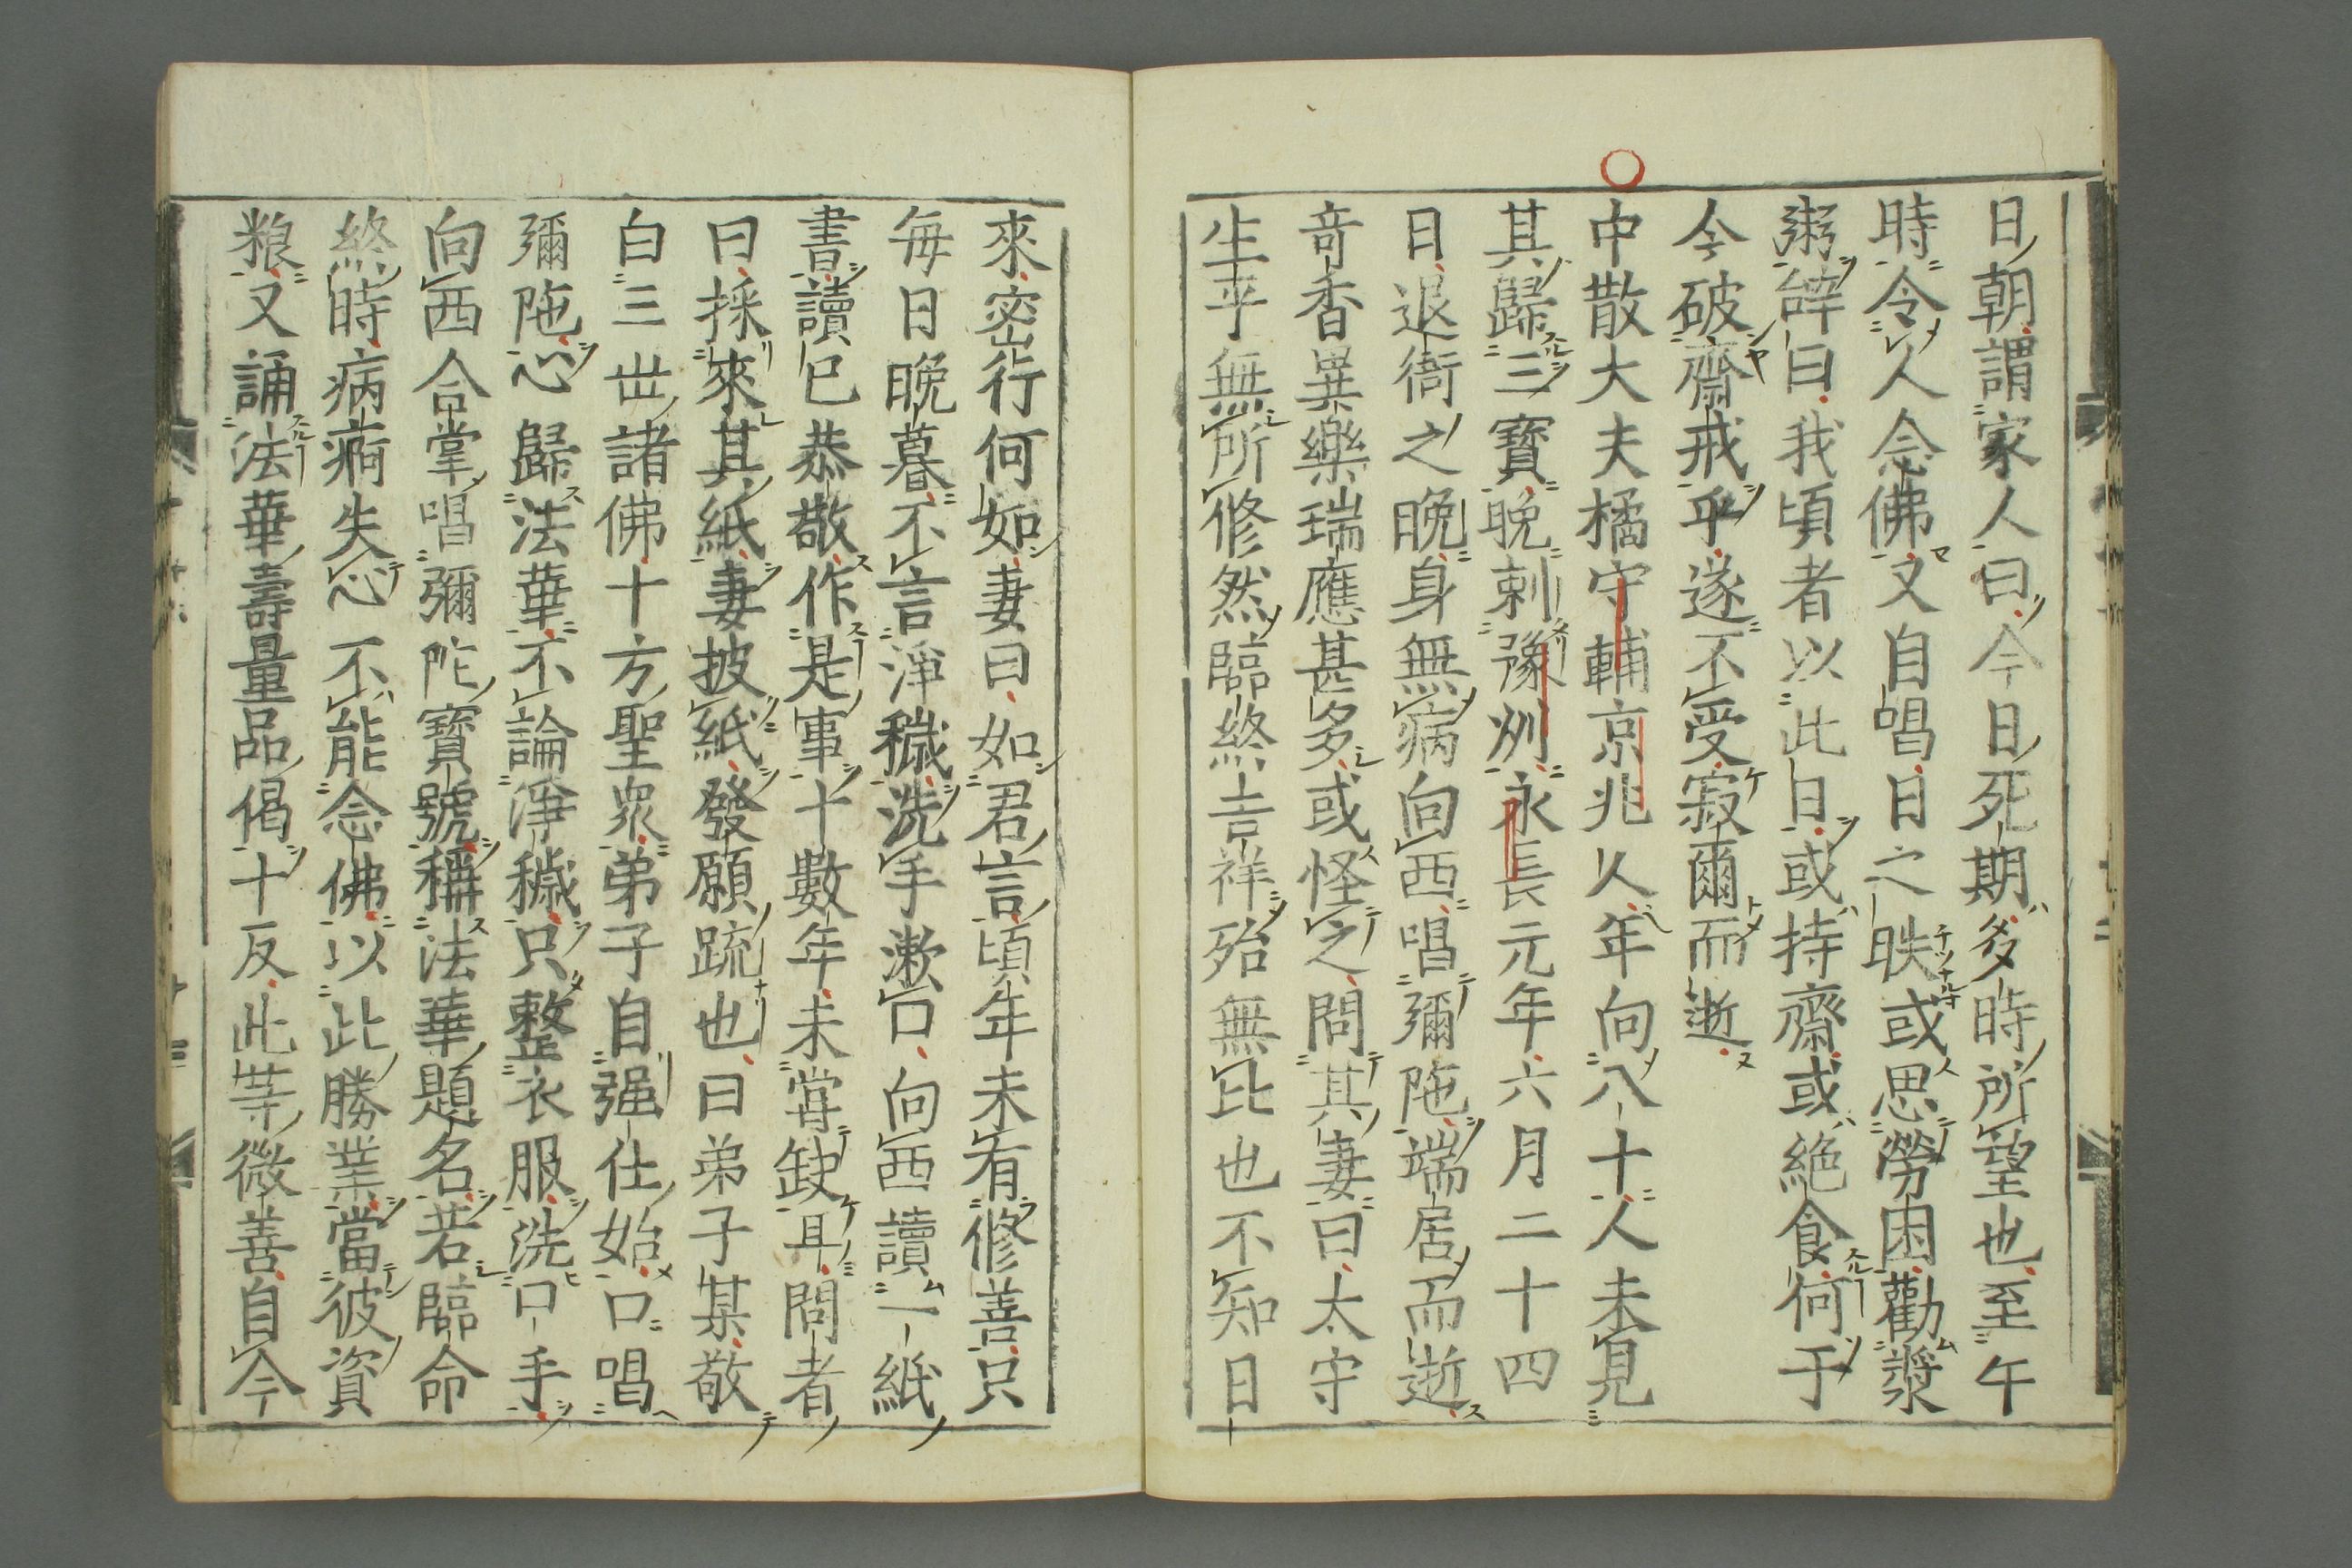 日朝謂家人曰今日死期多時所望也至午
時令人念佛又自唱日之昳或思勞困勸漿
粥辞曰我頃者以此日或持齋或絶食何于
今破齋戒乎遂不受寂爾而逝
中散大夫橘守輔京兆人年向八十人未見
其歸三寳晩刺豫州永長元年六月二十四
日退衙之晩身無病向西唱彌陁端居而逝
竒香異樂瑞應甚多或怪之問其妻曰太守
生平無所修然臨終吉祥殆無比也不知日
來宻行何如妻曰如君言頃年未有修善只
毎日晩暮不言淨穢洗手漱口向西讀一紙
書讀已恭敬作是事十數年未甞缺耳問者
曰採來其紙妻披紙發願疏也曰弟子某敬
白三世諸佛十方聖衆弟子自强仕始口唱
彌陁心歸法華不論淨穢只整衣服洗口手
向西合掌唱彌陀寳號稱法華題名若臨命
終時病痾失心不能念佛以此勝業當彼資
粮又誦法華壽量品偈十反此等微善自今